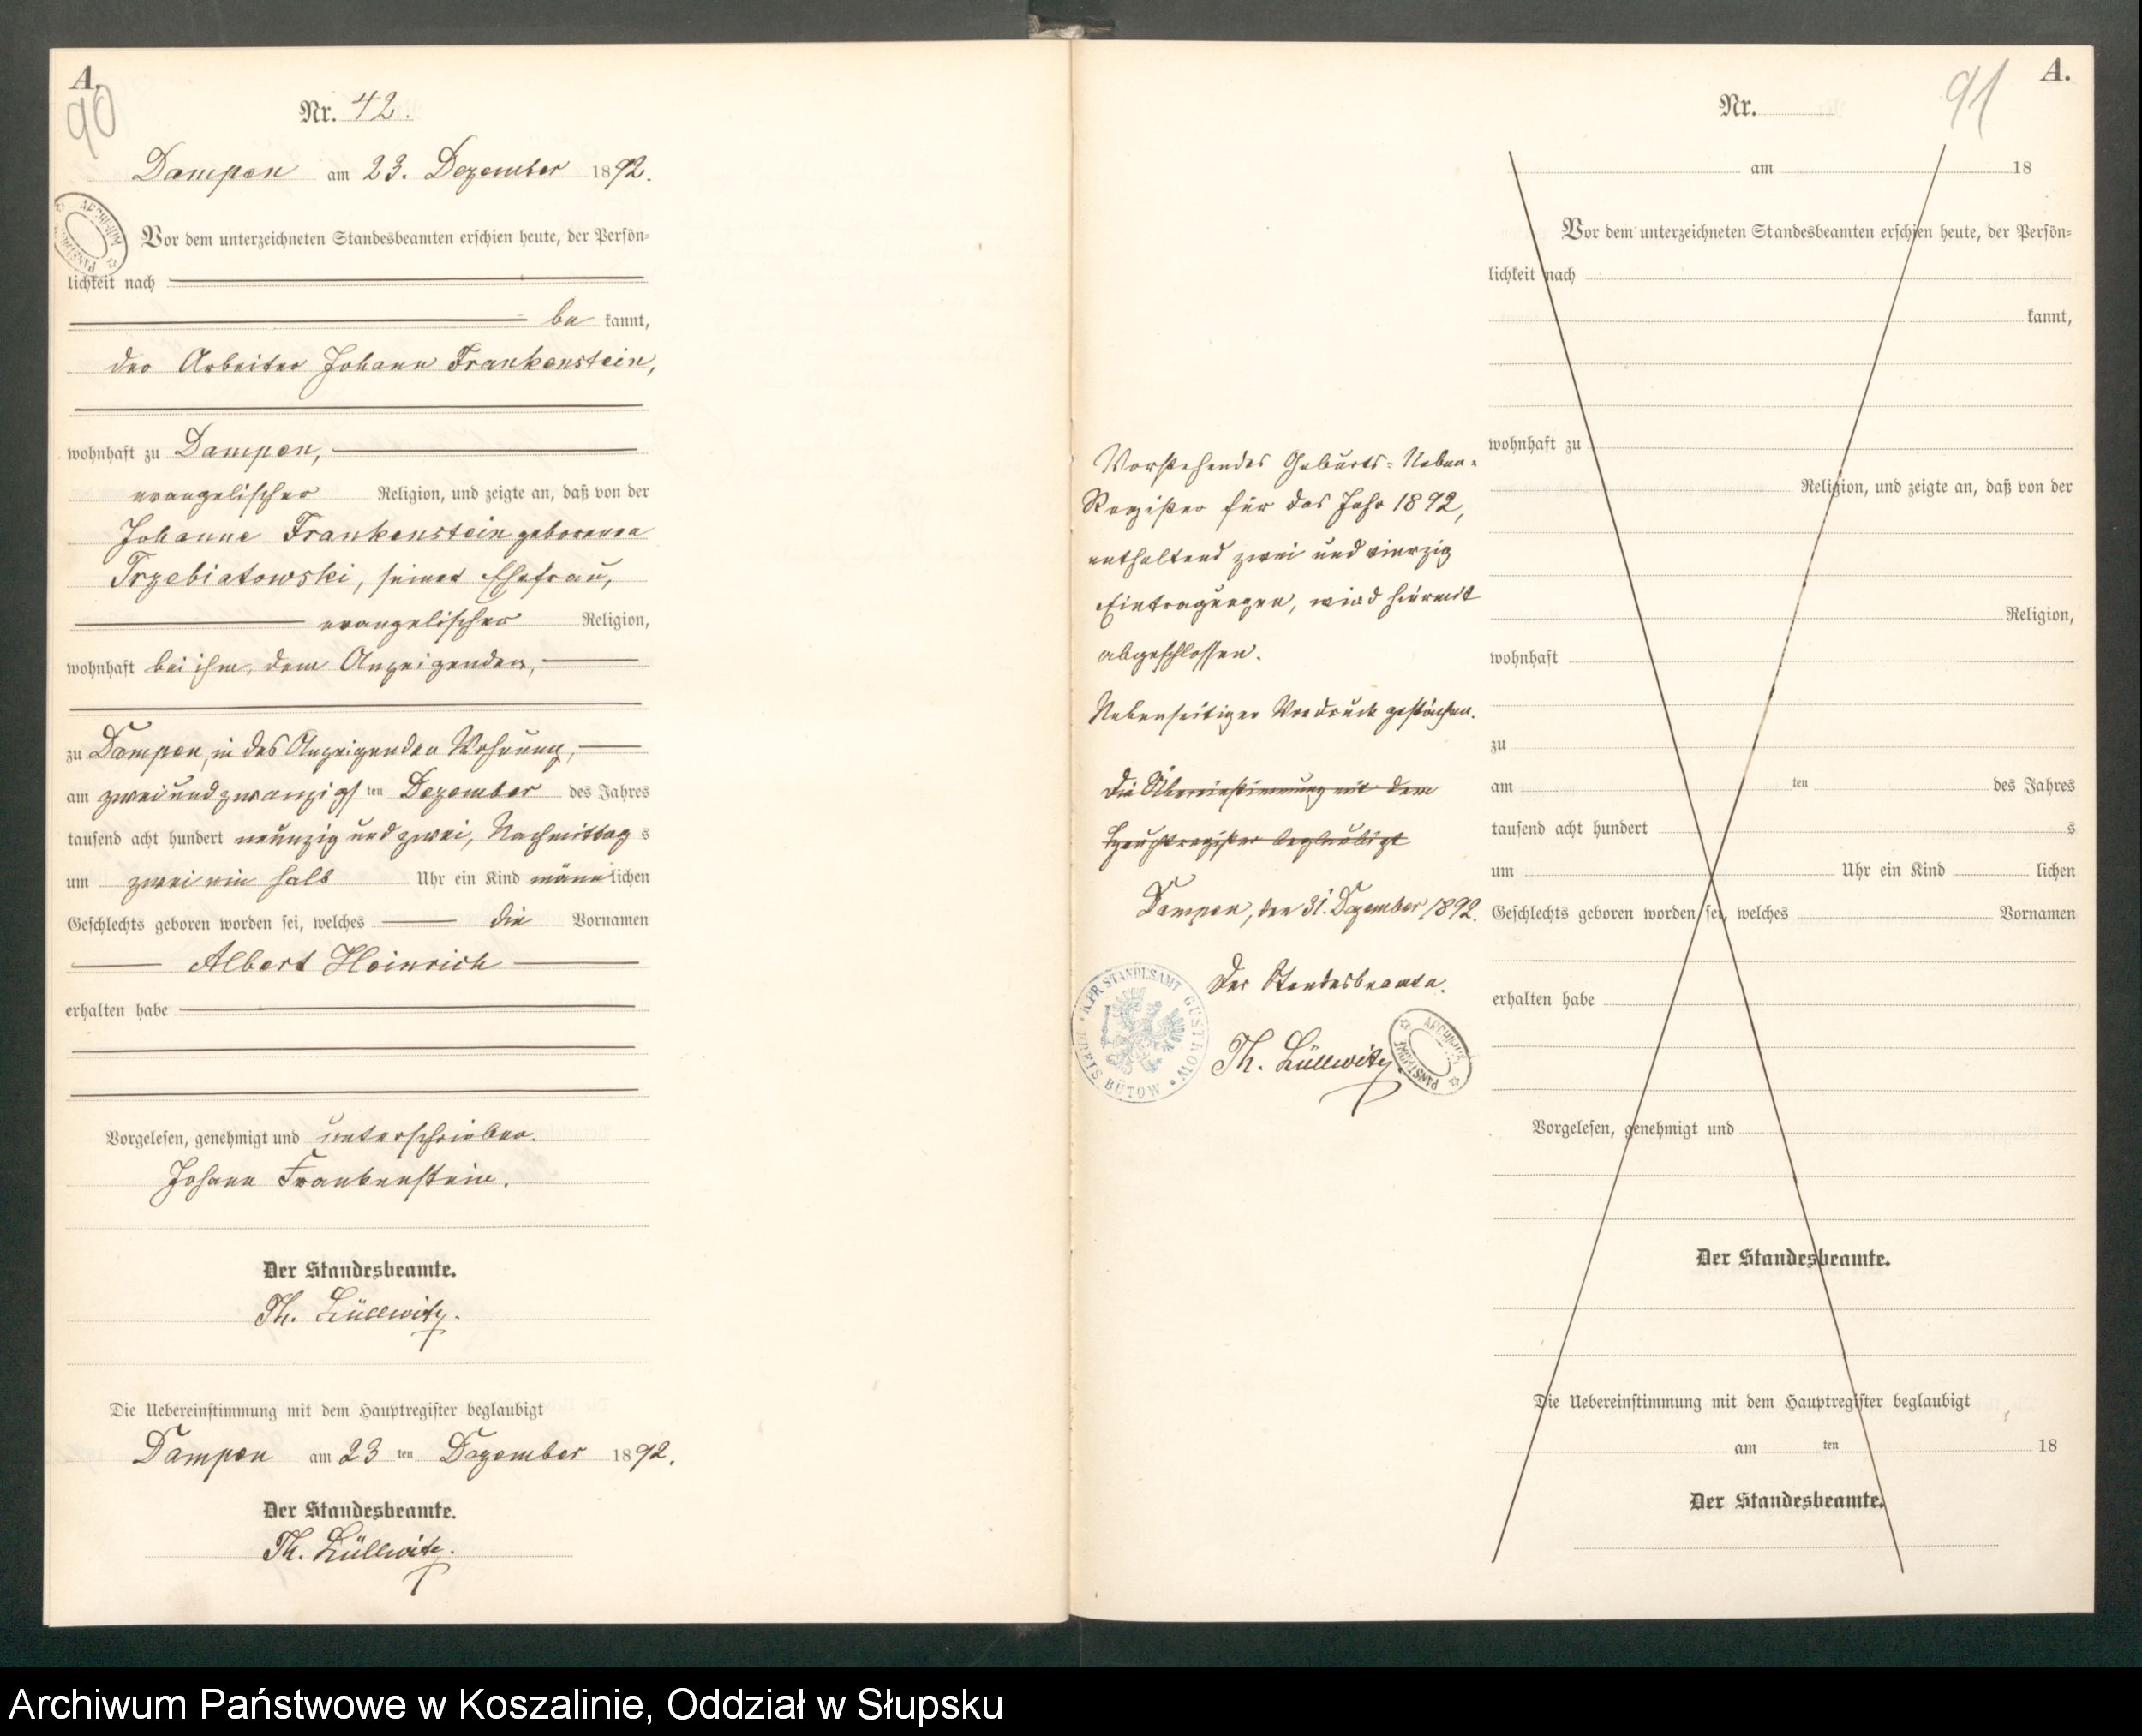 A.
90
Nr. 42.
Dampen am 23. Dezember 1892.
Vor dem unterzeichneten Standesbeamten erschien heute, der Persön=
lichkeit nach
be kannt,
der Arbeiter Johann Frankenstein,
wohnhaft zu Dampen,
evangelischer Religion, und zeigte an, daß von der
Johanne Frankenstein geborenen
Trzebiatowski, seiner Ehefrau,
evangelischer Religion,
wohnhaft bei ihm, dem Anzeigenden,
zu Dampen, in des Anzeigenden Wohnung,
am zweiundzwanzigsten Dezember des Jahres
tausend acht hundert neunzig und zwei, Nachmittag s
um zwei ein halb Uhr ein Kind männlichen
Geschlechts geboren worden sei, welches die Vornamen
Albert Heinrich
erhalten habe
Vorgelesen, genehmigt und unterschrieben.
Johann Frankenstein.
Der Standesbeamte.
Th. Lüllwitz.
Die Uebereinstimmung mit dem Hauptregister beglaubigt
Dampen am 23 ten Dezember 1892.
Der Standesbeamte.
Th. Lüllwitz.
Vorstehendes Geburts=Neben=
Register für das Jahr 1892,
enthaltend zwei und vierzig
Eintragungen, wird hiermit
abgeschlossen.
Nebenseitiger Vordruck gestrichen.
Die Übereinstimmung mit dem
Hauptregister beglaubigt
Dampen, den 31. Dezember 1892.
Der Standesbeamte.
Th. Lüllwitz.
K. PR. STANDESAMT GUSTKOW
KREIS BÜTOW
ARCHIWUM
PAŃSTWOWE
A.
91
Nr.
am 18
Vor dem unterzeichneten Standesbeamten erschien heute, der Persön=
lichkeit nach
kannt,
wohnhaft zu
Religion, und zeigte an, daß von der
Religion,
wohnhaft
zu
am ten des Jahres
tausend acht hundert s
um Uhr ein Kind lichen
Geschlechts geboren worden sei, welches Vornamen
erhalten habe
Vorgelesen, genehmigt und
Der Standesbeamte.
Die Uebereinstimmung mit dem Hauptregister beglaubigt
am ten 18
Der Standesbeamte.
Archiwum Państwowe w Koszalinie, Oddział w Słupsku